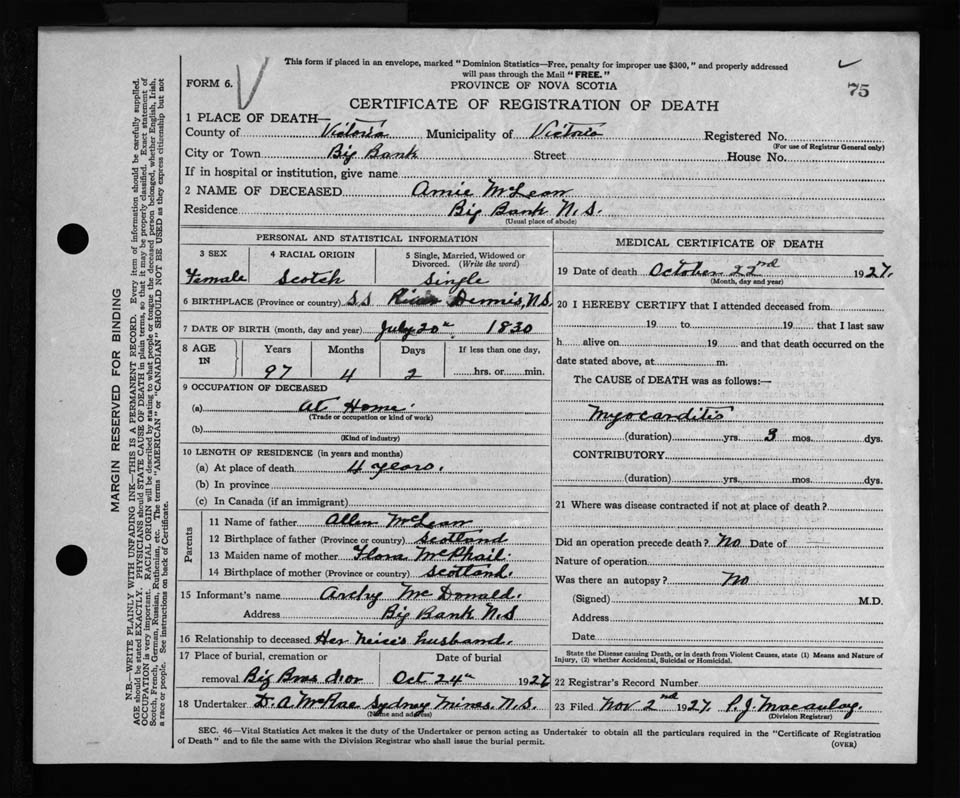 This form if placed in an envelope, marked "Dominion Statistics—Free, penalty for improper use $300," and properly addressed
will pass through the Mail "FREE."
FORM 6.
PROVINCE OF NOVA SCOTIA
75
CERTIFICATE OF REGISTRATION OF DEATH
1 PLACE OF DEATH—
County of Victoria Municipality of Victoria Registered No.
(For use of Registrar General only)
City or Town Big Bank Street House No.
If in hospital or institution, give name
2 NAME OF DECEASED Annie McLean
Residence Big Bank N.S.
(Usual place of abode)
PERSONAL AND STATISTICAL INFORMATION
3 SEX 4 RACIAL ORIGIN 5 Single, Married, Widowed or Divorced. (Write the word)
Female Scotch Single
6 BIRTHPLACE (Province or country) S.S River Dennis, N.S.
7 DATE OF BIRTH (month, day and year) July 20th 1830
8 AGE IN Years Months Days If less than one day,
97 4 2 hrs. or min.
9 OCCUPATION OF DECEASED
(a) At Home.
(Trade or occupation or kind of work)
(b)
(Kind of industry)
10 LENGTH OF RESIDENCE (in years and months)
(a) At place of death 4 years.
(b) In province
(c) In Canada (if an immigrant)
Parents
11 Name of father Allen McLean
12 Birthplace of father (Province or country) Scotland
13 Maiden name of mother Flora McPhail
14 Birthplace of mother (Province or country) Scotland.
15 Informant's name Archy McDonald.
Address Big Bank N.S
16 Relationship to deceased Her neice's husband.
17 Place of burial, cremation or Date of burial
removal Big Bras d'or Oct 24th 1927
18 Undertaker D. A McRae Sydney Mines, N.S.
(Name and address)
MEDICAL CERTIFICATE OF DEATH
19 Date of death October 22nd 1927.
(Month, day and year)
20 I HEREBY CERTIFY that I attended deceased from
19 to 19 that I last saw
h alive on 19 and that death occurred on the
date stated above, at m.
The CAUSE of DEATH was as follows:—
Myocarditis
(duration) yrs. 3 mos. dys.
CONTRIBUTORY
(duration) yrs. mos. dys.
21 Where was disease contracted if not at place of death?
Did an operation precede death? No Date of
Nature of operation
Was there an autopsy? No
(Signed) M.D.
Address
Date
State the Disease causing Death, or in death from Violent Causes, state (1) Means and Nature of
Injury, (2) whether Accidental, Suicidal or Homicidal.
22 Registrar's Record Number
23 Filed Nov 2nd 1927. P. J. Macaulay.
(Division Registrar)
SEC. 46—Vital Statistics Act makes it the duty of the Undertaker or person acting as Undertaker to obtain all the particulars required in the "Certificate of Registration
of Death" and to file the same with the Division Registrar who shall issue the burial permit.
(OVER)
MARGIN RESERVED FOR BINDING
N.B.—WRITE PLAINLY WITH UNFADING INK—THIS IS A PERMANENT RECORD. Every item of information should be carefully supplied.
AGE should be stated EXACTLY. PHYSICIANS should STATE CAUSE OF DEATH in plain terms, so that it may be properly classified. Exact statement of
OCCUPATION is very important. RACIAL ORIGIN will be described by stating to what people or tongue the deceased person belonged, whether English, Irish,
Scotch, French, German, Russian, Ruthenian, etc. The terms "AMERICAN" or "CANADIAN" SHOULD NOT BE USED as they express citizenship but not
a race or people. See instructions on back of Certificate.